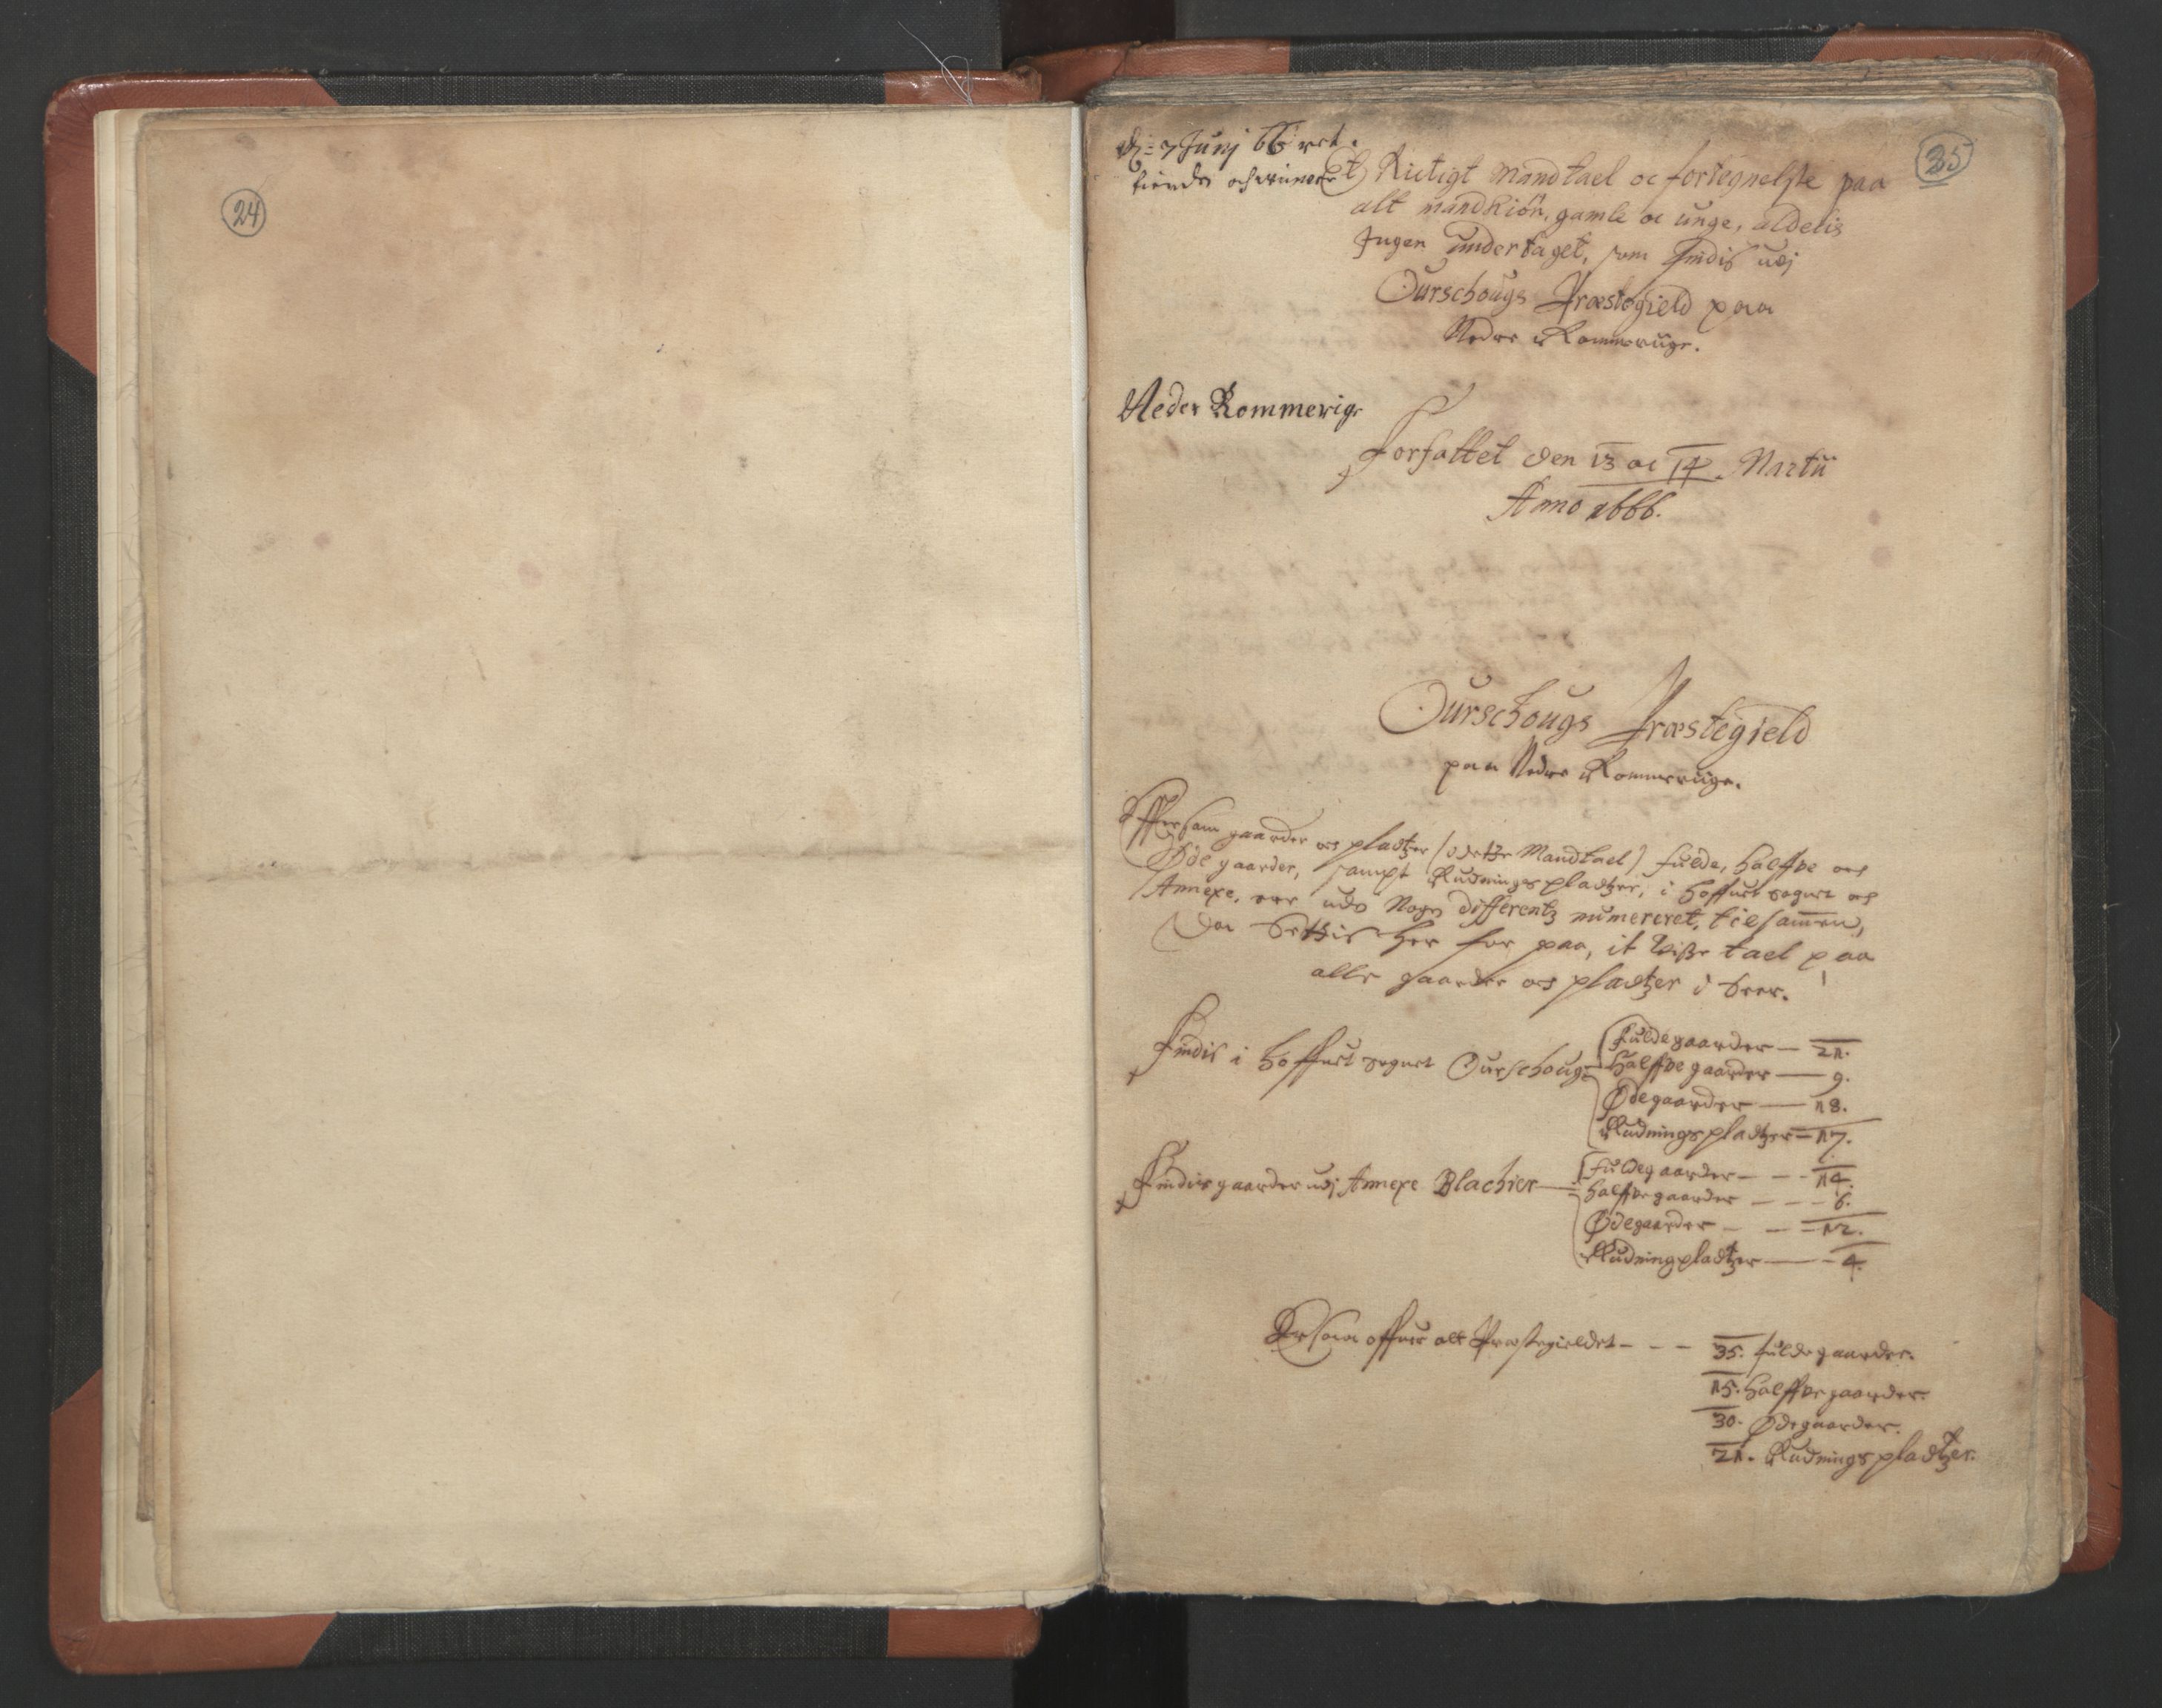 24
35
d. 7 Junj 66
Et Rictigt Mandtael oc fortegnelsse paa
alt mandkiön, gamle oc unge, aldelis
Ingen undertaget, som findis udj
Ourschougs Præstegield paa
Nedre Rommeriige.
Neder Rommerige
Forfattet den 13 oc 14. Martii
Anno 1666.
Ourschougs Præstegield
paa Nedre Rommeriige.
Effter som gaarder oc pladtzer (i dette Mandtael) fulde, halffve oc
Øde gaarder, sampt Rudnings pladtzer, i hoffuet sognet oc
Annexe, ere uden Nogen differentz numereret, tilsammen,
Da settis her for paa, it visse tael paa
alle gaarder oc pladtzer i seer.
Findis i hoffuet sognet Ourschoug
Fulde gaarder — 21.
Halffve gaarder — 9.
Øde gaarder — 18.
Rudnings pladtzer — 17.
Findis gaarder udj Annexe Blachier —
Fulde gaarder - - - 14.
halffve gaarder - - - 6.
Øde gaarder - - - 12.
Rudning pladtzer — - 4.
Er saa offuer alt Præstegieldet - - - 35. fulde gaarder.
15. halffve gaarder.
30. Øde gaarder.
21. Rudnings pladtzer.